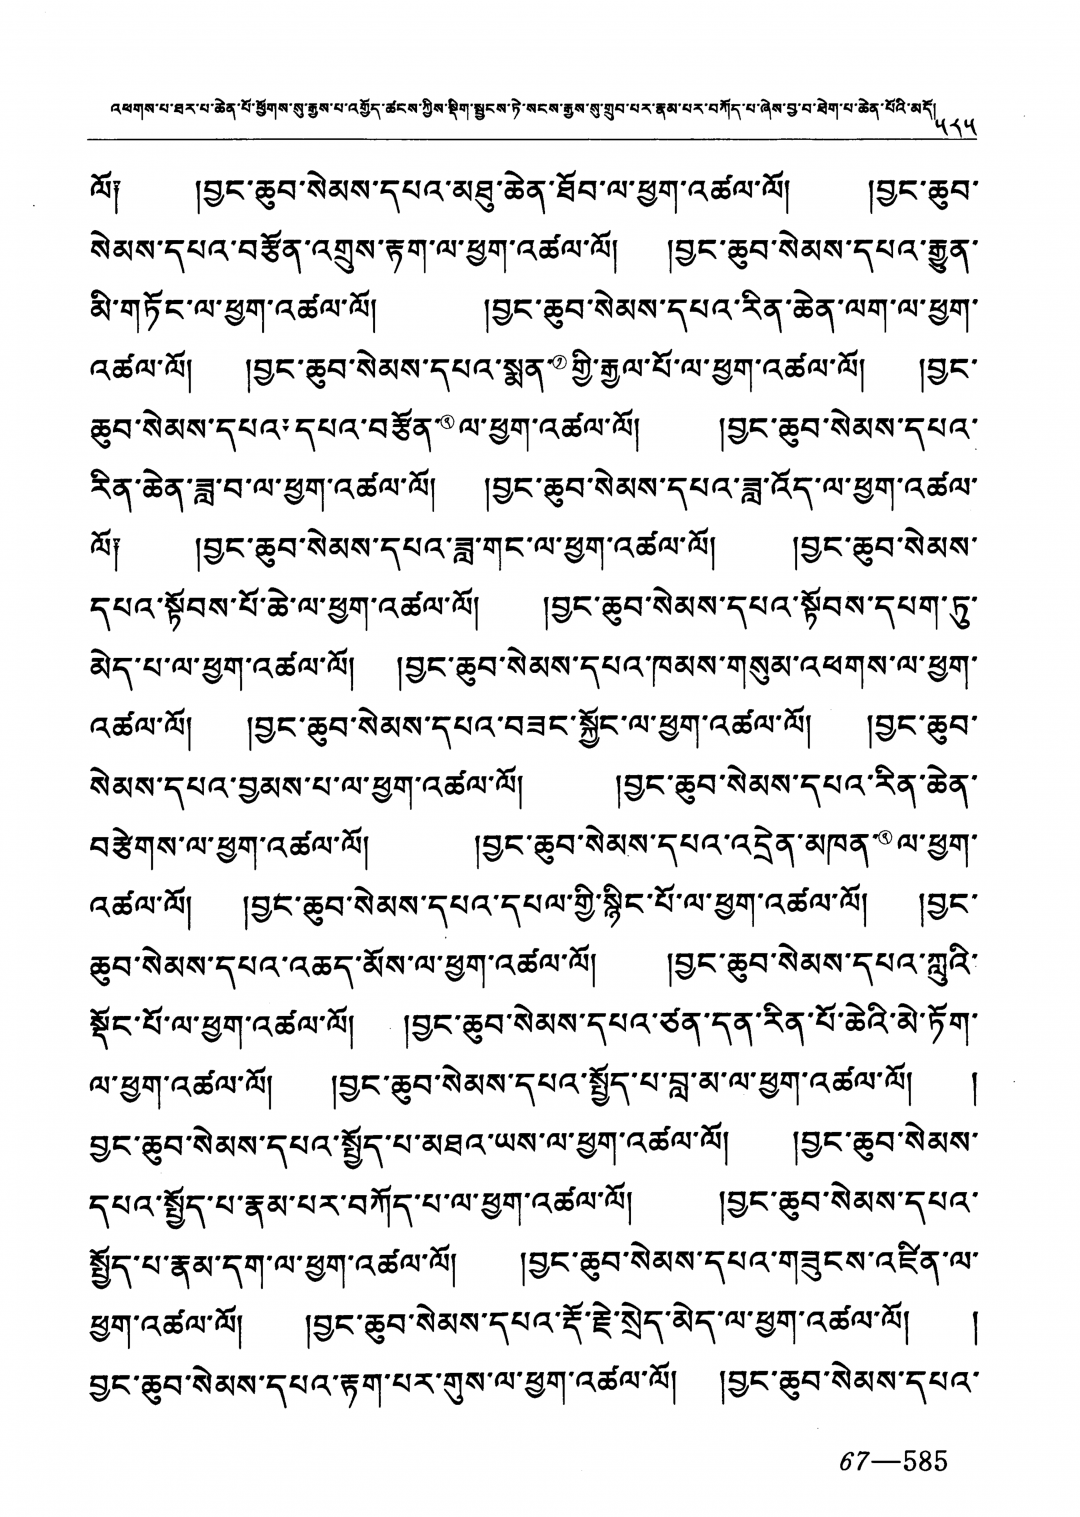 འཕགས་པ་ཐར་པ་ཆེན་པོ་ཕྱོགས་སུ་རྒྱས་པ་འགྱོད་ཚངས་ཀྱིས་སྡིག་སྦྱངས་ཏེ་སངས་རྒྱས་སུ་གྲུབ་པར་རྣམ་པར་བཀོད་པ་ཞེས་བྱ་བ་ཐེག་པ་ཆེན་པོའི་མདོ།
༥༨༥
ལོ༑ །བྱང་ཆུབ་སེམས་དཔའ་མཐུ་ཆེན་ཐོབ་ལ་ཕྱག་འཚལ་ལོ། །བྱང་ཆུབ་
སེམས་དཔའ་བརྩོན་འགྲུས་རྟག་ལ་ཕྱག་འཚལ་ལོ། །བྱང་ཆུབ་སེམས་དཔའ་རྒྱུན་
མི་གཏོང་ལ་ཕྱག་འཚལ་ལོ། །བྱང་ཆུབ་སེམས་དཔའ་རིན་ཆེན་ལག་ལ་ཕྱག་
འཚལ་ལོ། །བྱང་ཆུབ་སེམས་དཔའ་སྨན་གྱི་རྒྱལ་པོ་ལ་ཕྱག་འཚལ་ལོ། །བྱང་
ཆུབ་སེམས་དཔའ་དཔའ་བརྩོན་ལ་ཕྱག་འཚལ་ལོ། །བྱང་ཆུབ་སེམས་དཔའ་
རིན་ཆེན་ཟླ་བ་ལ་ཕྱག་འཚལ་ལོ། །བྱང་ཆུབ་སེམས་དཔའ་ཟླ་འོད་ལ་ཕྱག་འཚལ་
ལོ༑ །བྱང་ཆུབ་སེམས་དཔའ་ཟླ་གང་ལ་ཕྱག་འཚལ་ལོ། །བྱང་ཆུབ་སེམས་
དཔའ་སྟོབས་པོ་ཆེ་ལ་ཕྱག་འཚལ་ལོ། །བྱང་ཆུབ་སེམས་དཔའ་སྟོབས་དཔག་ཏུ་
མེད་པ་ལ་ཕྱག་འཚལ་ལོ། །བྱང་ཆུབ་སེམས་དཔའ་ཁམས་གསུམ་འཕགས་ལ་ཕྱག་
འཚལ་ལོ། །བྱང་ཆུབ་སེམས་དཔའ་བཟང་སྐྱོང་ལ་ཕྱག་འཚལ་ལོ། །བྱང་ཆུབ་
སེམས་དཔའ་བྱམས་པ་ལ་ཕྱག་འཚལ་ལོ། །བྱང་ཆུབ་སེམས་དཔའ་རིན་ཆེན་
བརྩེགས་ལ་ཕྱག་འཚལ་ལོ། །བྱང་ཆུབ་སེམས་དཔའ་འདྲེན་མཁན་ལ་ཕྱག་
འཚལ་ལོ། །བྱང་ཆུབ་སེམས་དཔའ་དཔལ་གྱི་སྙིང་པོ་ལ་ཕྱག་འཚལ་ལོ། །བྱང་
ཆུབ་སེམས་དཔའ་འཆད་མོས་ལ་ཕྱག་འཚལ་ལོ། །བྱང་ཆུབ་སེམས་དཔའ་ཀླུའི་
སྡོང་པོ་ལ་ཕྱག་འཚལ་ལོ། །བྱང་ཆུབ་སེམས་དཔའ་ཙན་དན་རིན་པོ་ཆེའི་མེ་ཏོག་
ལ་ཕྱག་འཚལ་ལོ། །བྱང་ཆུབ་སེམས་དཔའ་སྤྱོད་པ་བླ་མ་ལ་ཕྱག་འཚལ་ལོ། །
བྱང་ཆུབ་སེམས་དཔའ་སྤྱོད་པ་མཐའ་ཡས་ལ་ཕྱག་འཚལ་ལོ། །བྱང་ཆུབ་སེམས་
དཔའ་སྤྱོད་པ་རྣམ་པར་བཀོད་པ་ལ་ཕྱག་འཚལ་ལོ། །བྱང་ཆུབ་སེམས་དཔའ་
སྤྱོད་པ་རྣམ་དག་ལ་ཕྱག་འཚལ་ལོ། །བྱང་ཆུབ་སེམས་དཔའ་གཟུངས་འཛིན་ལ་
ཕྱག་འཚལ་ལོ། །བྱང་ཆུབ་སེམས་དཔའ་རྡོ་རྗེ་སྲེད་མེད་ལ་ཕྱག་འཚལ་ལོ། །
བྱང་ཆུབ་སེམས་དཔའ་རྟག་པར་གུས་ལ་ཕྱག་འཚལ་ལོ། །བྱང་ཆུབ་སེམས་དཔའ་
67—585